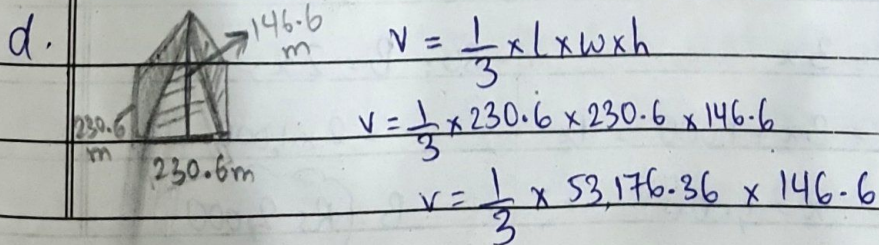 d.
146.6
m
V = 1/3 × l × w × h
230.6
m
230.6m
V = 1/3 × 230.6 × 230.6 × 146.6
V = 1/3 × 53,176.36 × 146.6